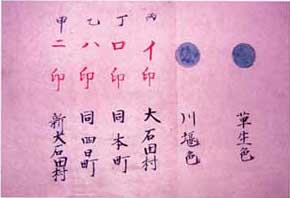 草生色
川堰色
丙 イ印 大石田村
丁 ロ印 同本町
乙 ハ印 同四日町
甲 ニ印 新大石田村